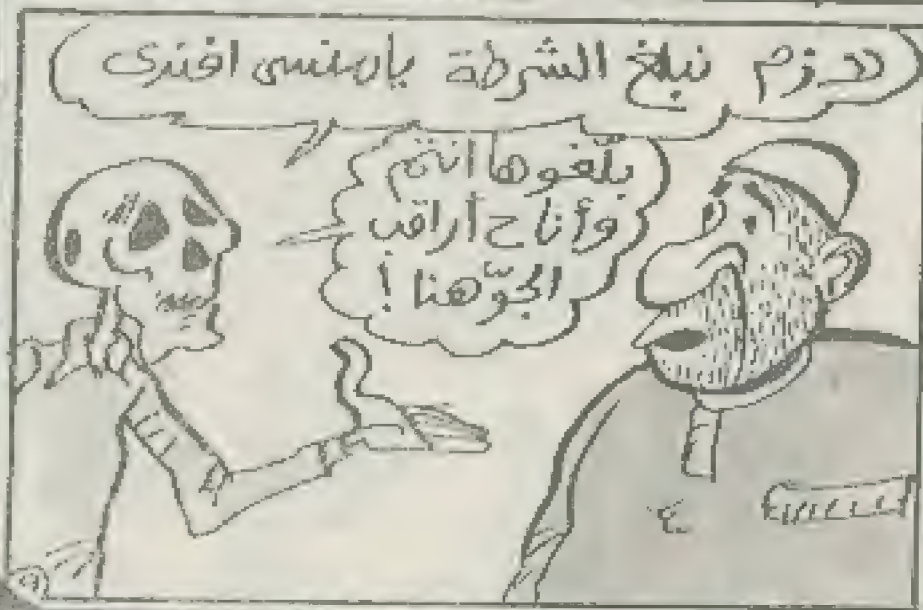 لازم نبلغ الشرطة يا منسى افندى
بلّغوها انتم
وأنا ح أراقب
الجوّ هنا !